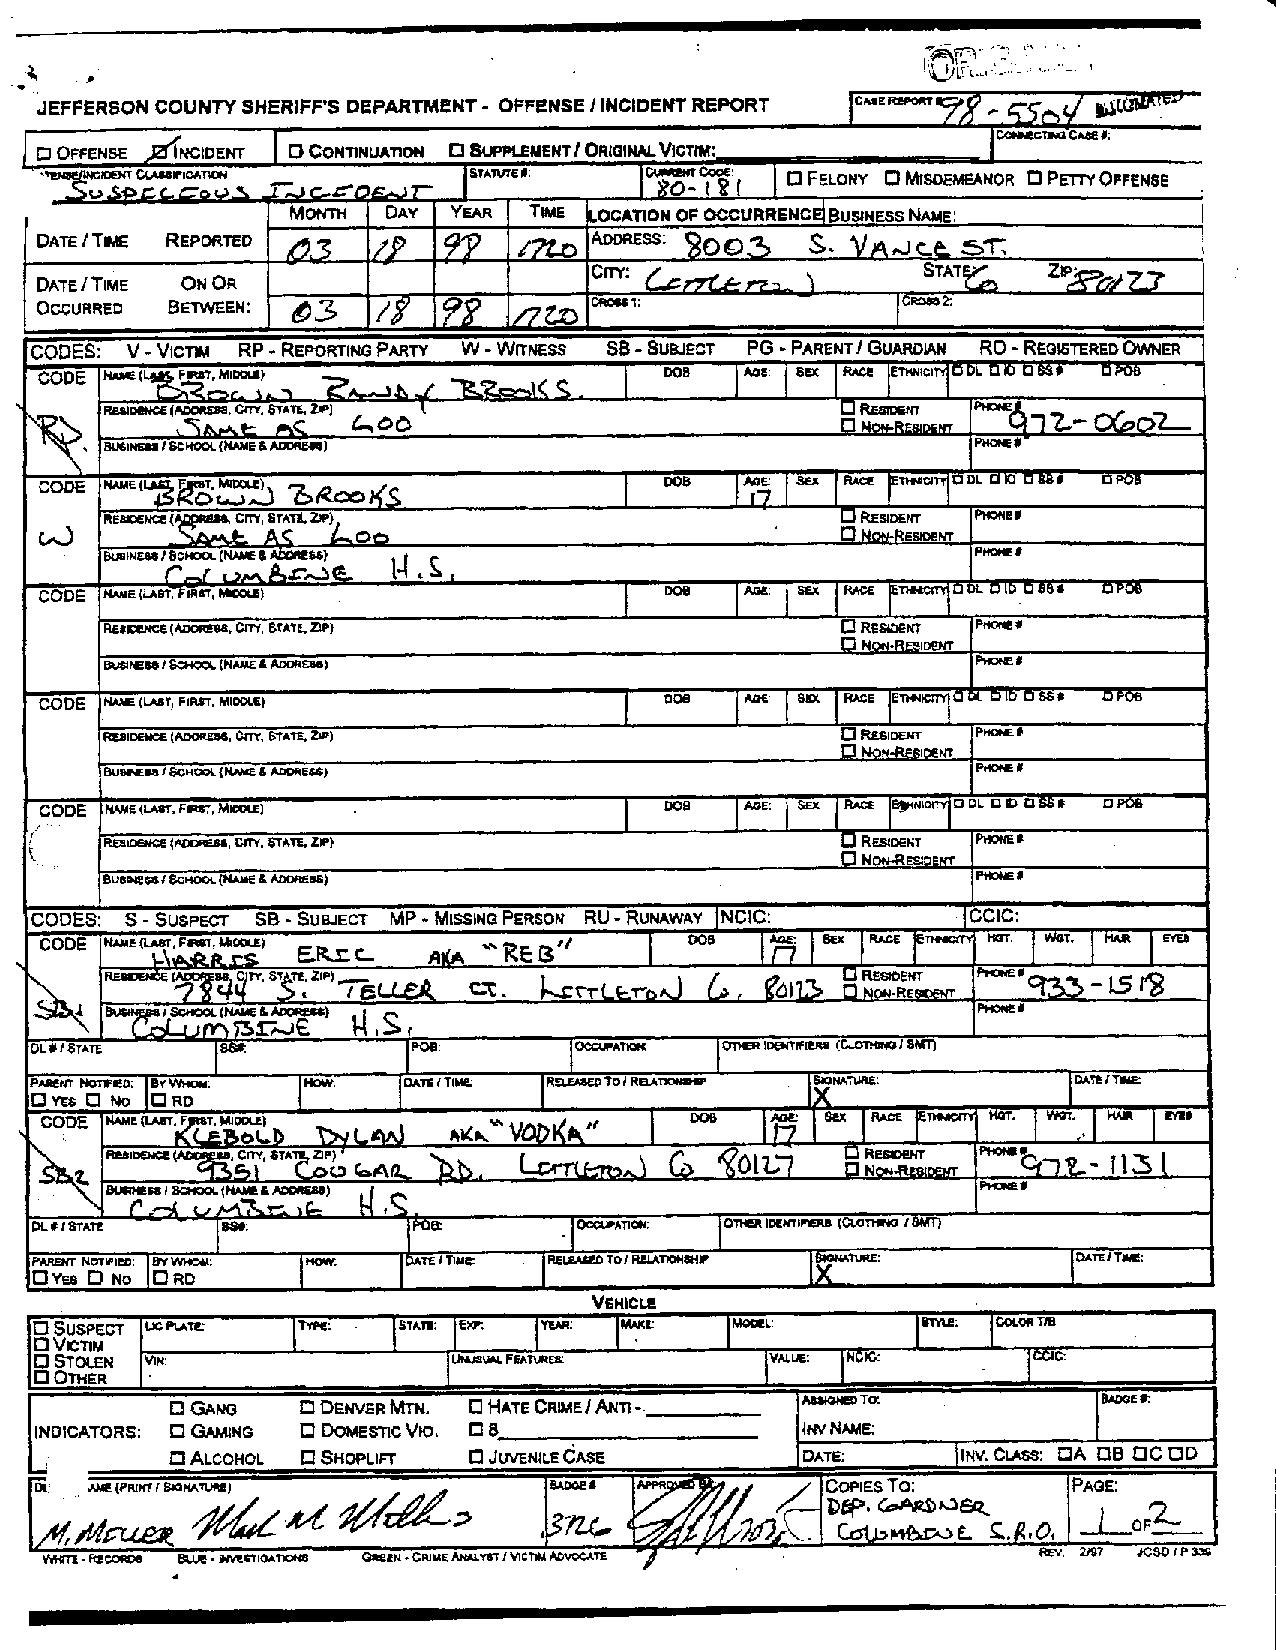 JEFFERSON COUNTY SHERIFF'S DEPARTMENT - OFFENSE / INCIDENT REPORT
CASE REPORT # 98-5504
CONNECTING CASE #:
☐ OFFENSE ☑ INCIDENT ☐ CONTINUATION ☐ SUPPLEMENT / ORIGINAL VICTIM:
OFFENSE/INCIDENT CLASSIFICATION STATUTE #: CURRENT CODE: ☐ FELONY ☐ MISDEMEANOR ☐ PETTY OFFENSE
SUSPECEOUS INCEDENT 80-181
MONTH DAY YEAR TIME LOCATION OF OCCURRENCE BUSINESS NAME:
DATE / TIME REPORTED 03 18 98 1720 ADDRESS: 8003 S. VANCE ST.
DATE / TIME ON OR CITY: LITTLETON STATE: Co ZIP: 80123
OCCURRED BETWEEN: 03 18 98 1720 CROSS 1: CROSS 2:
CODES: V - VICTIM RP - REPORTING PARTY W - WITNESS SB - SUBJECT PG - PARENT / GUARDIAN RO - REGISTERED OWNER
CODE NAME (LAST, FIRST, MIDDLE) DOB AGE: SEX RACE ETHNICITY ☐ DL ☐ ID ☐ SS # ☐ POB
BROWN RANDY BROOKS
RP RESIDENCE (ADDRESS, CITY, STATE, ZIP) ☐ RESIDENT PHONE #
SAME AS LOO ☐ NON-RESIDENT 972-0602
BUSINESS / SCHOOL (NAME & ADDRESS) PHONE #
CODE NAME (LAST, FIRST, MIDDLE) DOB AGE: SEX RACE ETHNICITY ☐ DL ☐ ID ☐ SS # ☐ POB
BROWN BROOKS 17
W RESIDENCE (ADDRESS, CITY, STATE, ZIP) ☐ RESIDENT PHONE #
SAME AS LOO ☐ NON-RESIDENT
BUSINESS / SCHOOL (NAME & ADDRESS) PHONE #
COLUMBINE H.S.
CODE NAME (LAST, FIRST, MIDDLE) DOB AGE: SEX RACE ETHNICITY ☐ DL ☐ ID ☐ SS # ☐ POB
RESIDENCE (ADDRESS, CITY, STATE, ZIP) ☐ RESIDENT PHONE #
☐ NON-RESIDENT
BUSINESS / SCHOOL (NAME & ADDRESS) PHONE #
CODE NAME (LAST, FIRST, MIDDLE) DOB AGE: SEX RACE ETHNICITY ☐ DL ☐ ID ☐ SS # ☐ POB
RESIDENCE (ADDRESS, CITY, STATE, ZIP) ☐ RESIDENT PHONE #
☐ NON-RESIDENT
BUSINESS / SCHOOL (NAME & ADDRESS) PHONE #
CODE NAME (LAST, FIRST, MIDDLE) DOB AGE: SEX RACE ETHNICITY ☐ DL ☐ ID ☐ SS # ☐ POB
RESIDENCE (ADDRESS, CITY, STATE, ZIP) ☐ RESIDENT PHONE #
☐ NON-RESIDENT
BUSINESS / SCHOOL (NAME & ADDRESS) PHONE #
CODES: S - SUSPECT SB - SUBJECT MP - MISSING PERSON RU - RUNAWAY NCIC: CCIC:
CODE NAME (LAST, FIRST, MIDDLE) DOB AGE: SEX RACE ETHNICITY HGT. WGT. HAIR EYES
HARRIS ERIC AKA "REB" 17
SB1 RESIDENCE (ADDRESS, CITY, STATE, ZIP) ☐ RESIDENT PHONE #
7844 S. TELLER CT. LITTLETON Co. 80123 ☐ NON-RESIDENT 933-1518
BUSINESS / SCHOOL (NAME & ADDRESS) PHONE #
COLUMBINE H.S.
DL # / STATE SS#: POB: OCCUPATION: OTHER IDENTIFIERS (CLOTHING / SMT)
PARENT NOTIFIED: BY WHOM: HOW: DATE / TIME: RELEASED TO / RELATIONSHIP SIGNATURE: DATE / TIME:
☐ YES ☐ NO ☐ RD X
CODE NAME (LAST, FIRST, MIDDLE) DOB AGE: SEX RACE ETHNICITY HGT. WGT. HAIR EYES
KLEBOLD DYLAN AKA "VODKA" 17
SB2 RESIDENCE (ADDRESS, CITY, STATE, ZIP) ☐ RESIDENT PHONE #
9351 COUGAR RD. LITTLETON Co 80127 ☐ NON-RESIDENT 978-1131
BUSINESS / SCHOOL (NAME & ADDRESS) PHONE #
COLUMBINE H.S.
DL # / STATE SS#: POB: OCCUPATION: OTHER IDENTIFIERS (CLOTHING / SMT)
PARENT NOTIFIED: BY WHOM: HOW: DATE / TIME: RELEASED TO / RELATIONSHIP SIGNATURE: DATE / TIME:
☐ YES ☐ NO ☐ RD X
VEHICLE
☐ SUSPECT LIC PLATE: TYPE: STATE: EXP: YEAR: MAKE: MODEL: STYLE: COLOR T/B
☐ VICTIM
☐ STOLEN VIN: UNUSUAL FEATURES: VALUE: NCIC: CCIC:
☐ OTHER
☐ GANG ☐ DENVER MTN. ☐ HATE CRIME / ANTI - ASSIGNED TO: BADGE #:
INDICATORS: ☐ GAMING ☐ DOMESTIC VIO. ☐ 8 INV NAME:
☐ ALCOHOL ☐ SHOPLIFT ☐ JUVENILE CASE DATE: INV. CLASS: ☐A ☐B ☐C ☐D
NAME (PRINT / SIGNATURE) BADGE # APPROVED BY COPIES TO: PAGE:
M. MILLER DEP. GARDNER
COLUMBINE S.R.O. 1 OF 2
WHITE - RECORDS BLUE - INVESTIGATIONS GREEN - CRIME ANALYST / VICTIM ADVOCATE REV. 2/97 JCSD / P 335